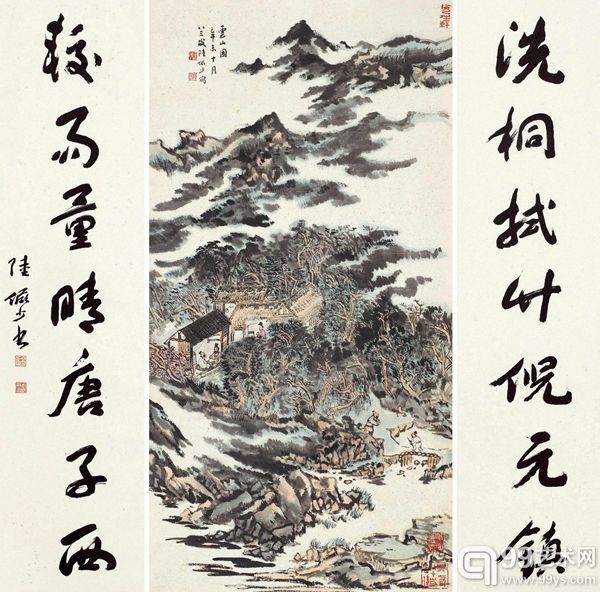 洗桐拭竹倪元鎮
雲山圖
辛未十月
八三歲陸儼少寫
較雨量晴唐子西
陸儼少書
99艺术网
www.99ys.com